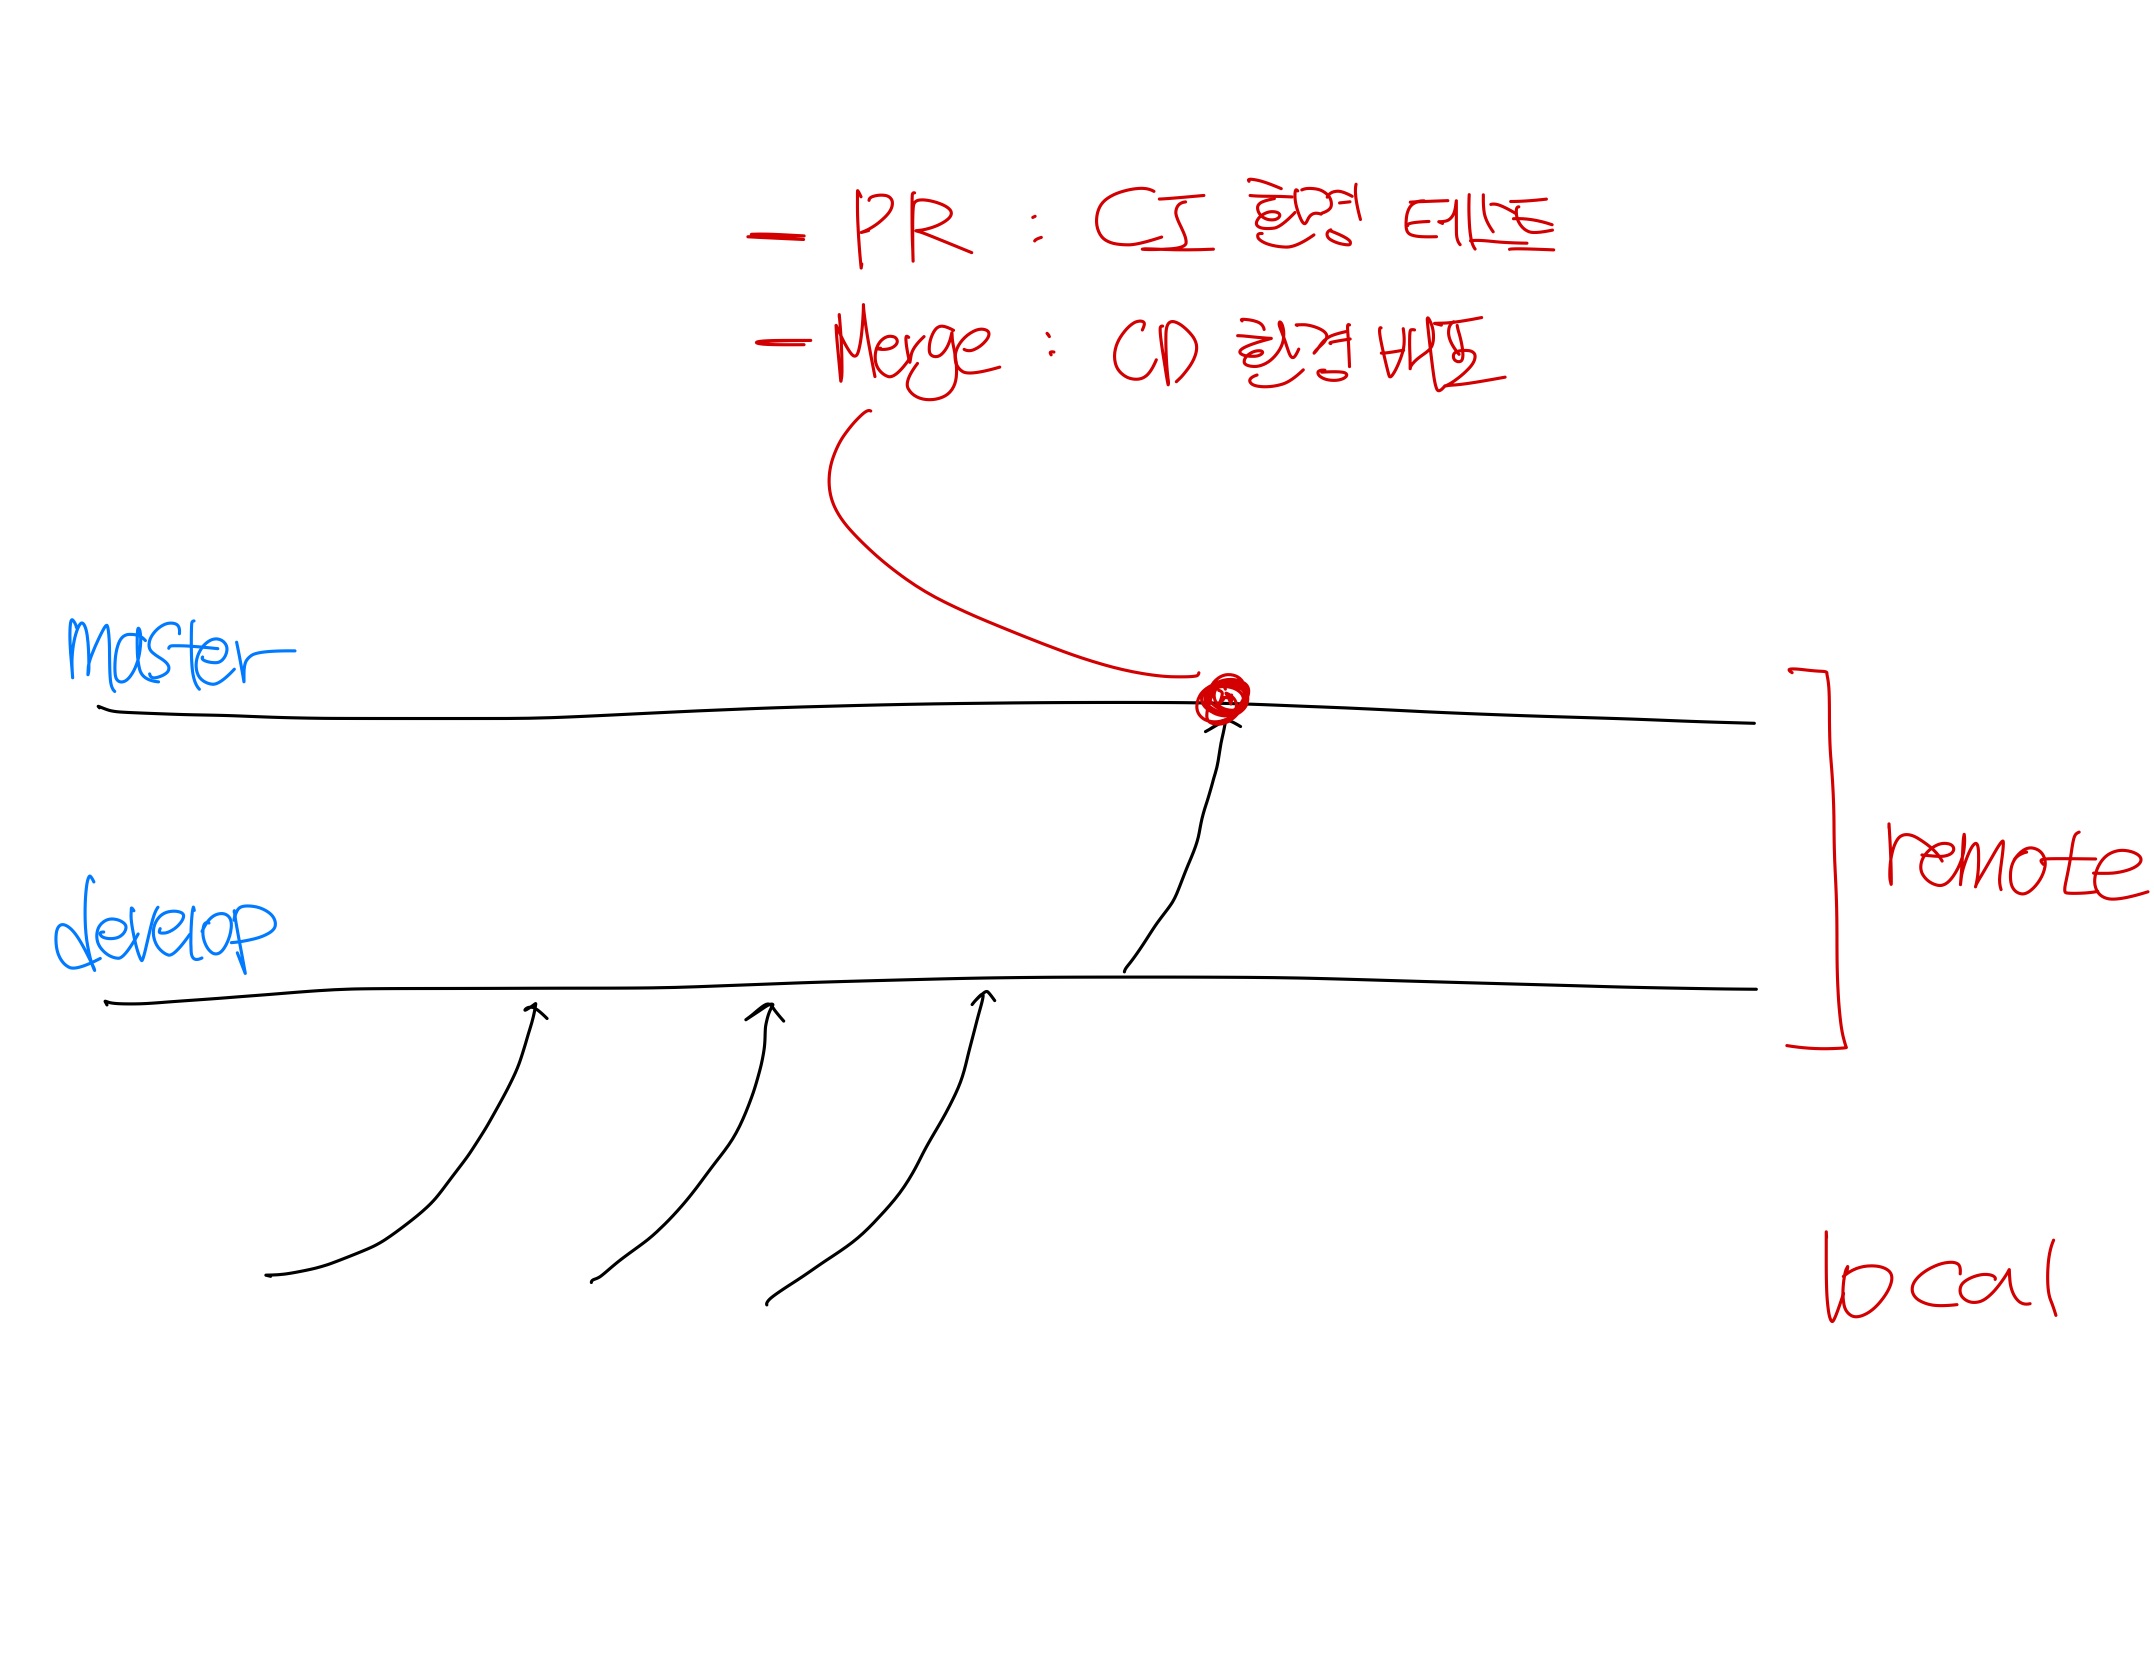 - PR : CI 환경 테스트
- Merge : CD 환경 배포
master
develop
remote
local